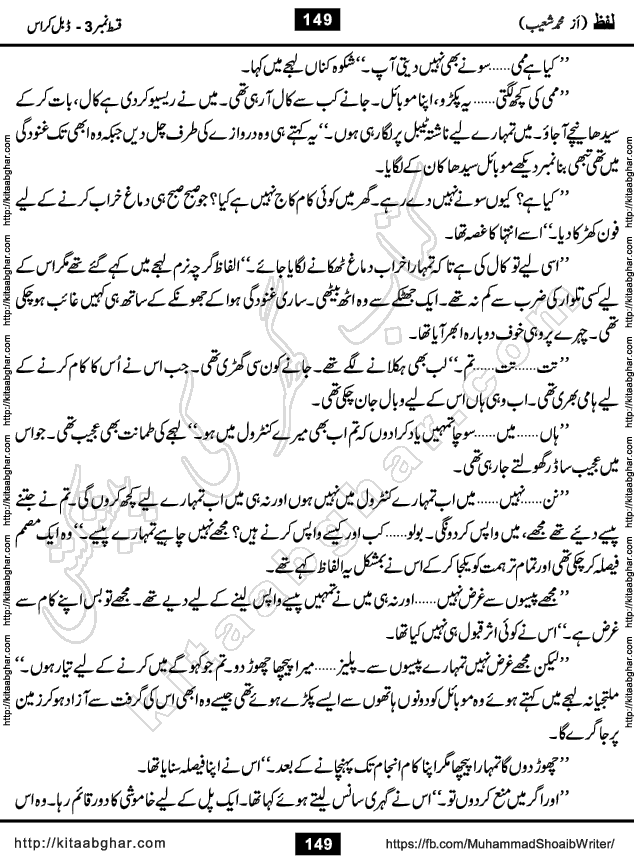 لفظ (از محمد شعیب)
149
قسط نمبر 3 - ڈبل کراس
’’کیا ہے ممی......سونے بھی نہیں دیتی آپ۔‘‘ شکوہ کناں لہجے میں کہا۔
’’ممی کی کچھ لگتی...... یہ پکڑو، اپنا موبائل۔ جانے کب سے کال آ رہی تھی۔ میں نے ریسیو کر دی ہے کال، بات کر کے
سیدھا نیچے آ جاؤ۔ میں تمہارے لیے ناشتہ ٹیبل پر لگا رہی ہوں۔‘‘ یہ کہتے ہی وہ دروازے کی طرف چل دیں جبکہ وہ ابھی تک غنودگی
میں تھی تبھی بنا نمبر دیکھے موبائل سیدھا کان کے لگایا۔
’’کیا ہے؟ کیوں سونے نہیں دے رہے۔ گھر میں کوئی کام کاج نہیں ہے کیا؟ جو صبح صبح ہی دماغ خراب کرنے کے لیے
فون کھڑکا دیا۔‘‘ اسے انتہا کا غصہ تھا۔
’’اسی لیے تو کال کی ہے تاکہ تمہارا خراب دماغ ٹھکانے لگایا جائے۔‘‘ الفاظ گرچہ نرم لہجے میں کہے گئے تھے مگر اس کے
لیے کسی تلوار کی ضرب سے کم نہ تھے۔ ایک جھٹکے سے وہ اٹھ بیٹھی۔ ساری غنودگی ہوا کے جھونکے کے ساتھ ہی کہیں غائب ہو چکی
تھی۔ چہرے پر وہی خوف دوبارہ ابھر آیا تھا۔
’’تت......تت......تم۔‘‘ لب بھی ہکلانے لگے تھے۔ جانے کون سی گھڑی تھی۔ جب اس نے اُس کا کام کرنے کے
لیے ہامی بھری تھی۔ اب وہی ہاں اس کے لیے وبال جان چکی تھی۔
’’ہاں...... میں...... سوچا تمہیں یاد کرا دوں کہ تم اب بھی میرے کنٹرول میں ہو۔‘‘ لہجے کی طمانت بھی عجیب تھی۔ جو اس
میں عجیب سا ڈر گھولتے جا رہی تھی۔
’’نن......نہیں......میں اب تمہارے کنٹرول میں نہیں ہوں اور نہ ہی میں اب تمہارے لیے کچھ کروں گی۔ تم نے جتنے
پیسے دئیے تھے مجھے، میں واپس کر دونگی۔ بولو......کب اور کیسے واپس کرنے ہیں؟ مجھے نہیں چاہیے تمہارے پیسے۔‘‘ وہ ایک مصمم
فیصلہ کر چکی تھی اور تمام تر ہمت کو یکجا کر کے اس نے بمشکل یہ الفاظ کہے تھے۔
’’مجھے پیسوں سے غرض نہیں......اور نہ ہی میں نے تمہیں پیسے واپس لینے کے لیے دیے تھے۔ مجھے تو بس اپنے کام سے
غرض ہے۔‘‘ اس نے کوئی اثر قبول ہی نہیں کیا تھا۔
’’لیکن مجھے غرض نہیں تمہارے پیسوں سے۔ پلیز......میرا پیچھا چھوڑ دو۔ تم جو کہو گے میں کرنے کے لیے تیار ہوں۔‘‘
ملتجیانہ لہجے میں کہتے ہوئے وہ موبائل کو دونوں ہاتھوں سے ایسے پکڑے ہوئے تھی جیسے وہ ابھی اس کی گرفت سے آزاد ہو کر زمین
پر جا گرے گا۔
’’چھوڑ دوں گا تمہارا پیچھا مگر اپنا کام انجام تک پہنچانے کے بعد۔‘‘ اس نے اپنا فیصلہ سنایا تھا۔
’’اور اگر میں منع کر دوں تو۔‘‘ اس نے گہری سانس لیتے ہوئے کہا تھا۔ ایک پل کے لیے خاموشی کا دور قائم رہا۔ وہ اس
http://kitaabghar.com
149
https://fb.com/MuhammadShoaibWriter/
http://kitaabghar.com http://kitaabghar.com http://kitaabghar.com http://kitaabghar.com http://kitaabghar.com http://kitaabghar.com
http://kitaabghar.com http://kitaabghar.com http://kitaabghar.com http://kitaabghar.com http://kitaabghar.com http://kitaabghar.com
کتاب گھر کی پیشکش
kitaabghar.com